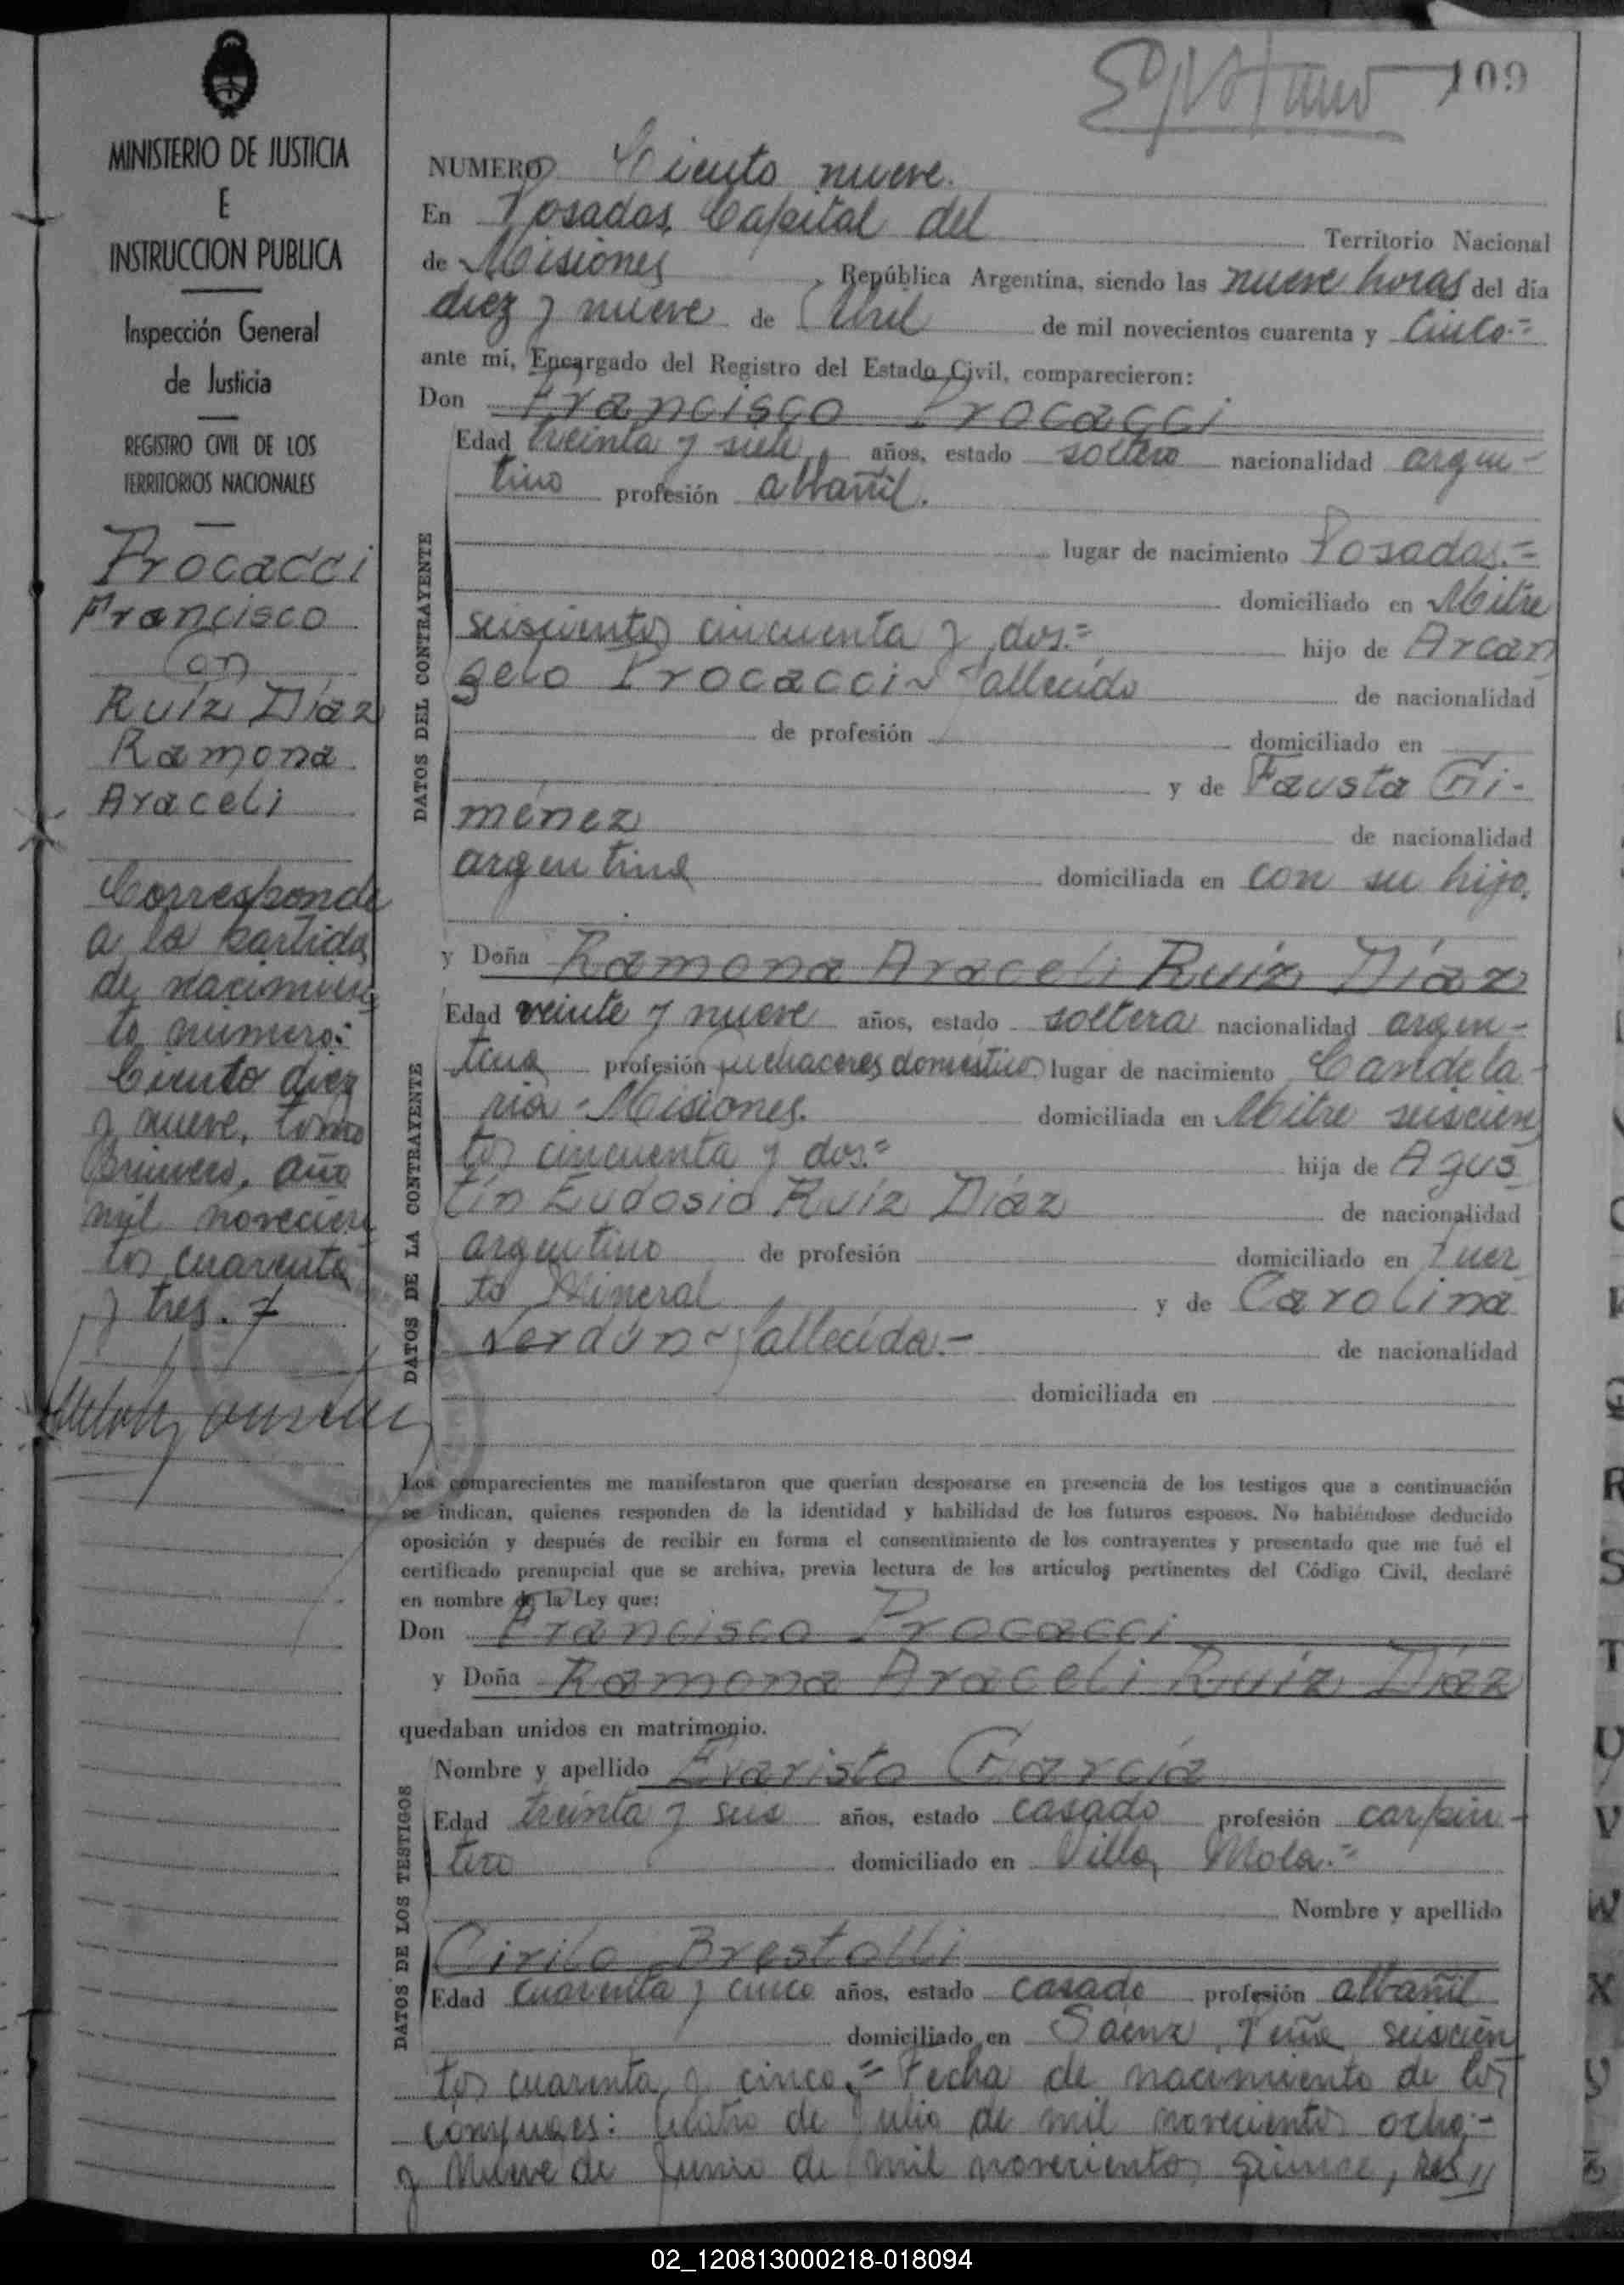 109
MINISTERIO DE JUSTICIA
E
INSTRUCCION PUBLICA
Inspección General
de Justicia
REGISTRO CIVIL DE LOS
TERRITORIOS NACIONALES
Procacci
Francisco
Con
Ruíz Díaz
Ramona
Araceli
Corresponde
a la partida
de nacimien
to número:
Ciento diez
y nueve, tomo
Primero, año
mil novecien
tos cuarenta
y tres.
NUMERO Ciento nueve.
En Posadas, Capital del Territorio Nacional
de Misiones, República Argentina, siendo las nueve horas del día
diez y nueve de Abril de mil novecientos cuarenta y Cinco.=
ante mí, Encargado del Registro del Estado Civil, comparecieron:
Don Francisco Procacci
DATOS DEL CONTRAYENTE
Edad treinta y siete años, estado soltero nacionalidad argen-
tino profesión albañil.
lugar de nacimiento Posadas.=
domiciliado en Mitre
seiscientos cincuenta y dos.= hijo de Arcan
gelo Procacci ~ fallecido de nacionalidad
de profesión domiciliado en
y de Fausta Gi-
ménez de nacionalidad
argentina domiciliada en con su hijo.
y Doña Ramona Araceli Ruíz Díaz
DATOS DE LA CONTRAYENTE
Edad veinte y nueve años, estado soltera nacionalidad argen-
tina profesión quehaceres domestico lugar de nacimiento Candela-
ria - Misiones. domiciliada en Mitre seiscien
tos cincuenta y dos.= hija de Agus
tín Eudosio Ruíz Díaz de nacionalidad
argentino de profesión domiciliado en Puer
to Mineral y de Carolina
Verdún ~ fallecida.- de nacionalidad
domiciliada en
Los comparecientes me manifestaron que querían desposarse en presencia de los testigos que a continuación
se indican, quienes responden de la identidad y habilidad de los futuros esposos. No habiéndose deducido
oposición y después de recibir en forma el consentimiento de los contrayentes y presentado que me fué el
certificado prenupcial que se archiva, previa lectura de los artículos pertinentes del Código Civil, declaré
en nombre de la Ley que:
Don Francisco Procacci
y Doña Ramona Araceli Ruíz Díaz
quedaban unidos en matrimonio.
DATOS DE LOS TESTIGOS
Nombre y apellido Evaristo García
Edad treinta y seis años, estado casado profesión carpin-
tero domiciliado en Villa Mola.=
Nombre y apellido
Cirilo Brestolli
Edad cuarenta y cinco años, estado casado profesión albañil
domiciliado en Saenz Peña seiscien
tos cuarenta y cinco.= Fecha de nacimiento de los
conyuges: Cuatro de Julio de mil novecientos ocho.-
y Nueve de Junio de mil novecientos quince, res//
R
S
T
U
V
W
X
Y
Z
02_120813000218-018094